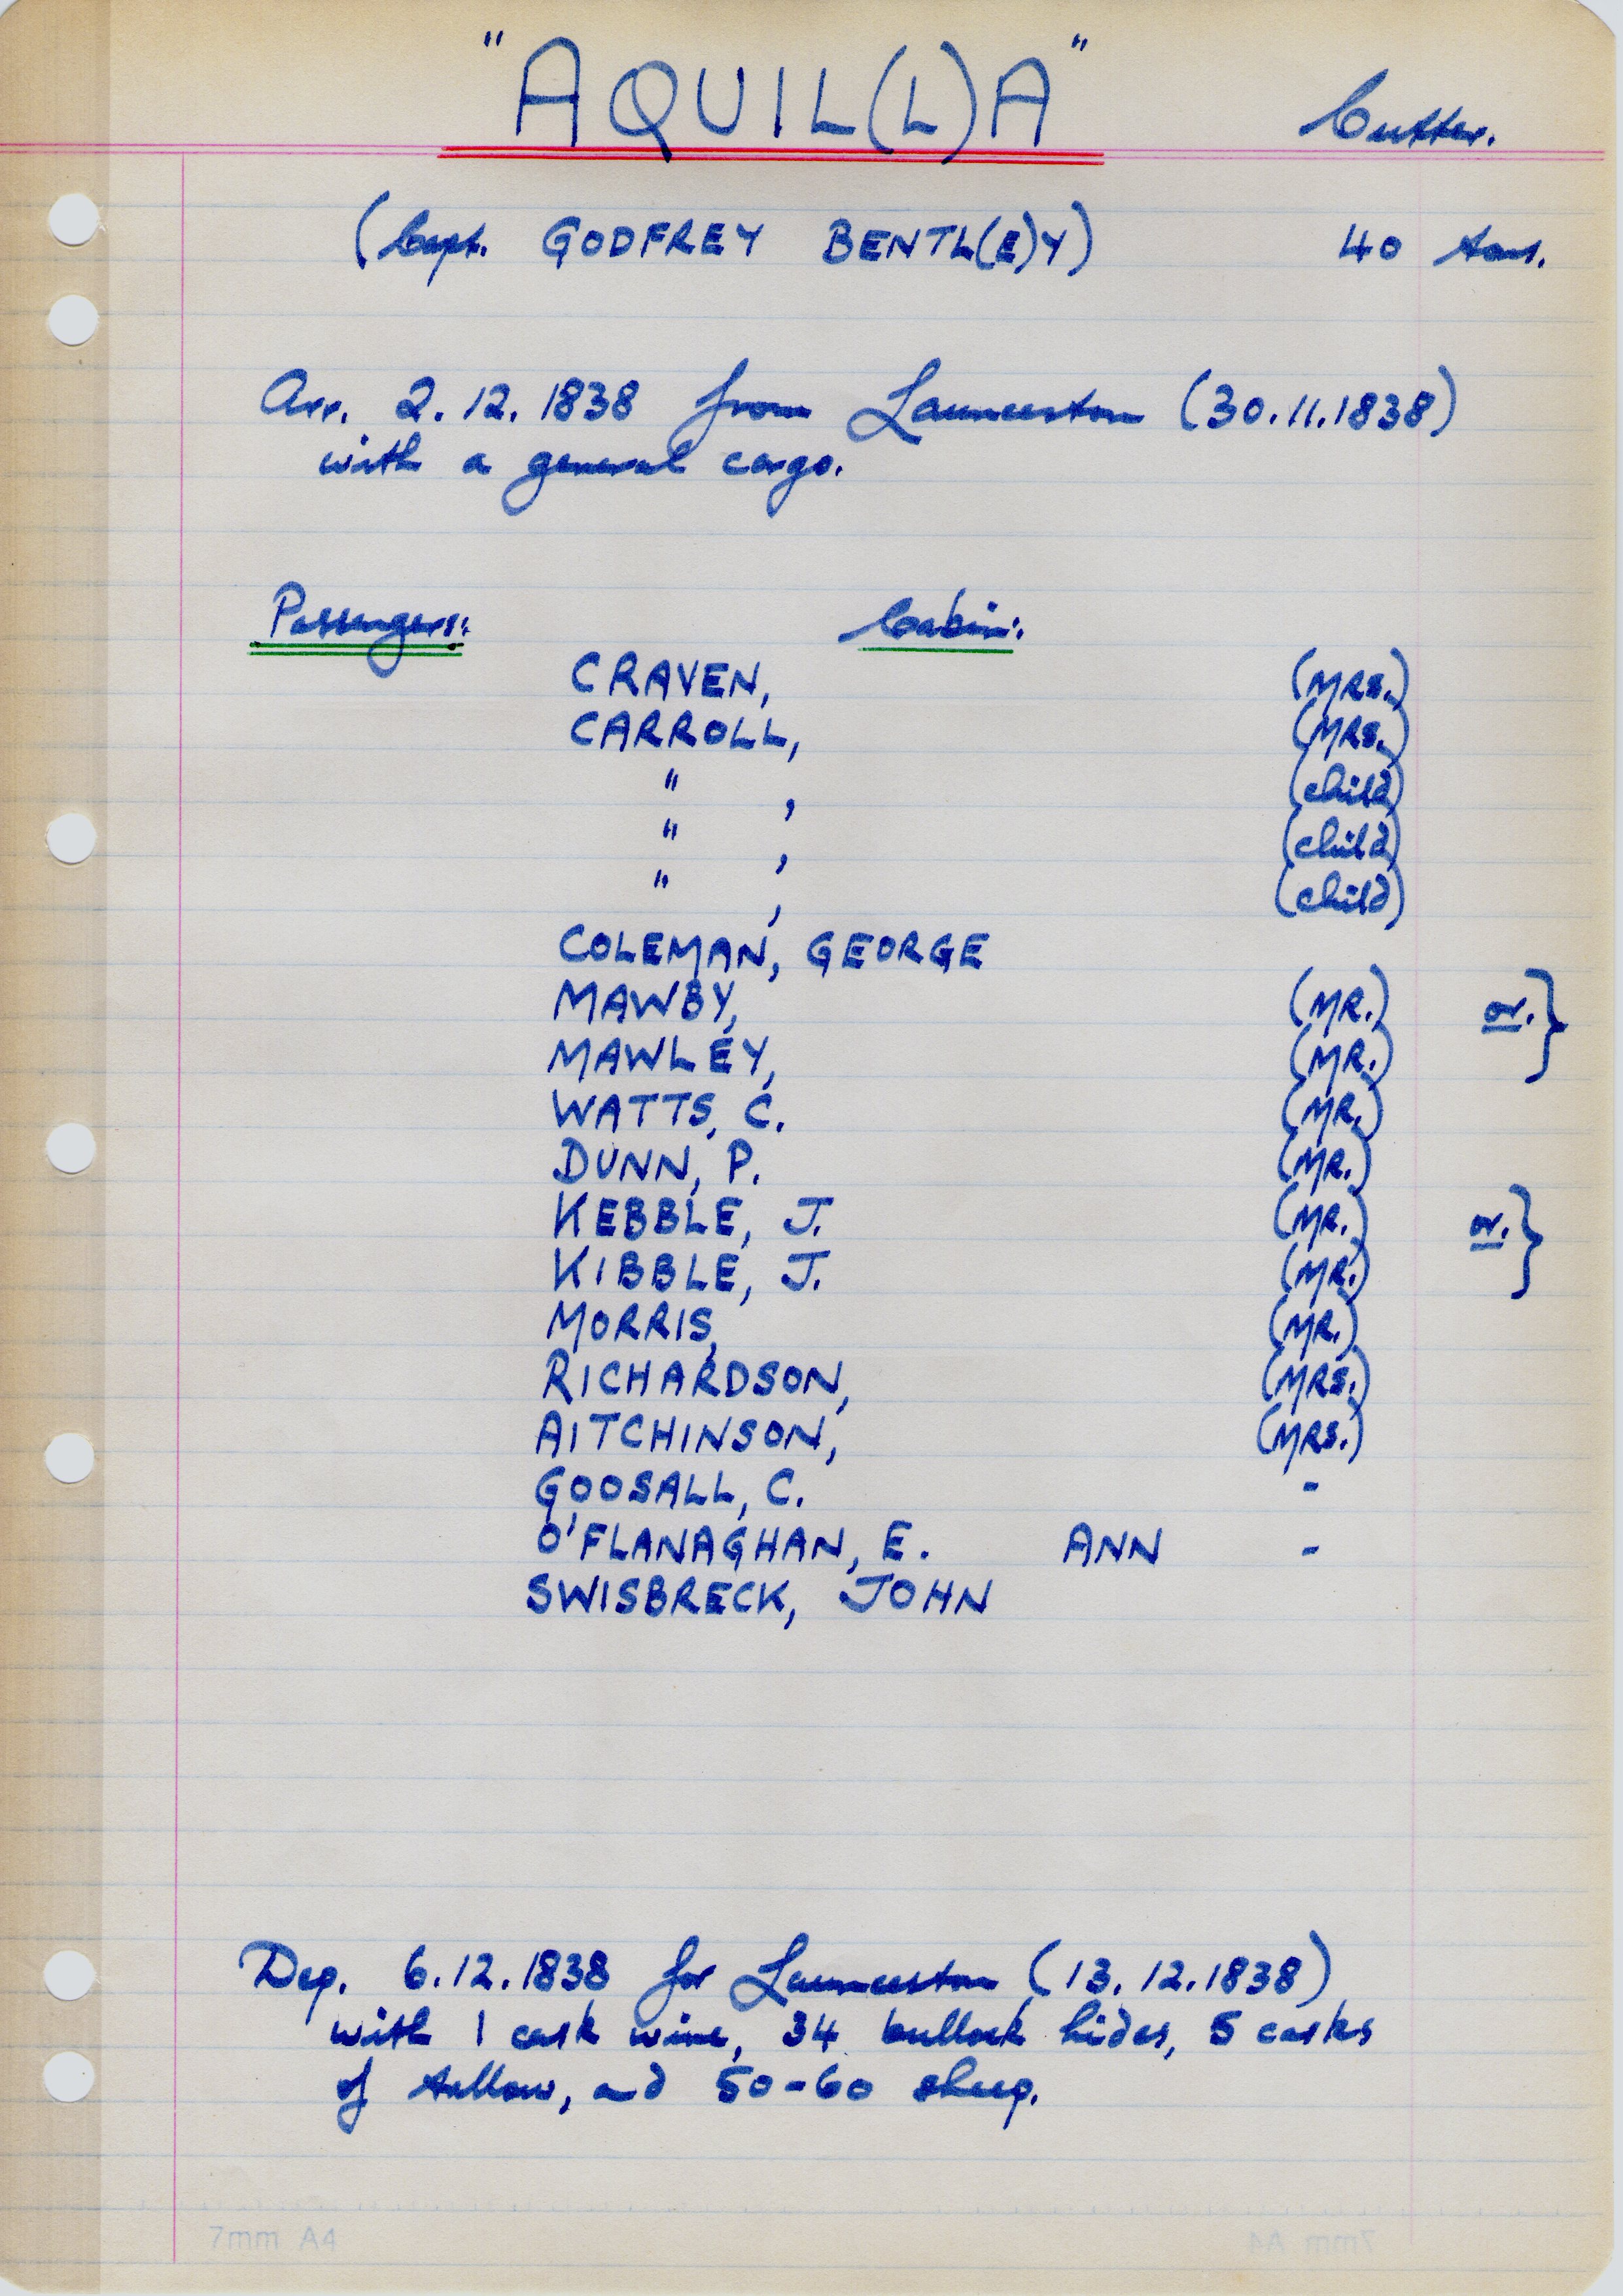 "AQUIL(L)A" Cutter.
(Capt. GODFREY BENTL(E)Y) 40 tons.
Arr. 2.12.1838 from Launceston (30.11.1838)
with a general cargo.
Passengers: Cabin:
CRAVEN, (MRS.)
CARROLL, (MRS.)
" , (child)
" , (child)
" , (child)
COLEMAN, GEORGE
MAWBY, (MR.) or. }
MAWLEY, (MR.)
WATTS, C. (MR.)
DUNN, P. (MR.)
KEBBLE, J. (MR.) or. }
KIBBLE, J. (MR.)
MORRIS, (MR.)
RICHARDSON, (MRS.)
AITCHINSON, (MRS.)
GOOSALL, C. -
O'FLANAGHAN, E. ANN -
SWISBRECK, JOHN
Dep. 6.12.1838 for Launceston (13.12.1838)
with 1 cask wine, 34 bullock hides, 5 casks
of tallow, and 50-60 sheep.
7mm A4 7mm A4